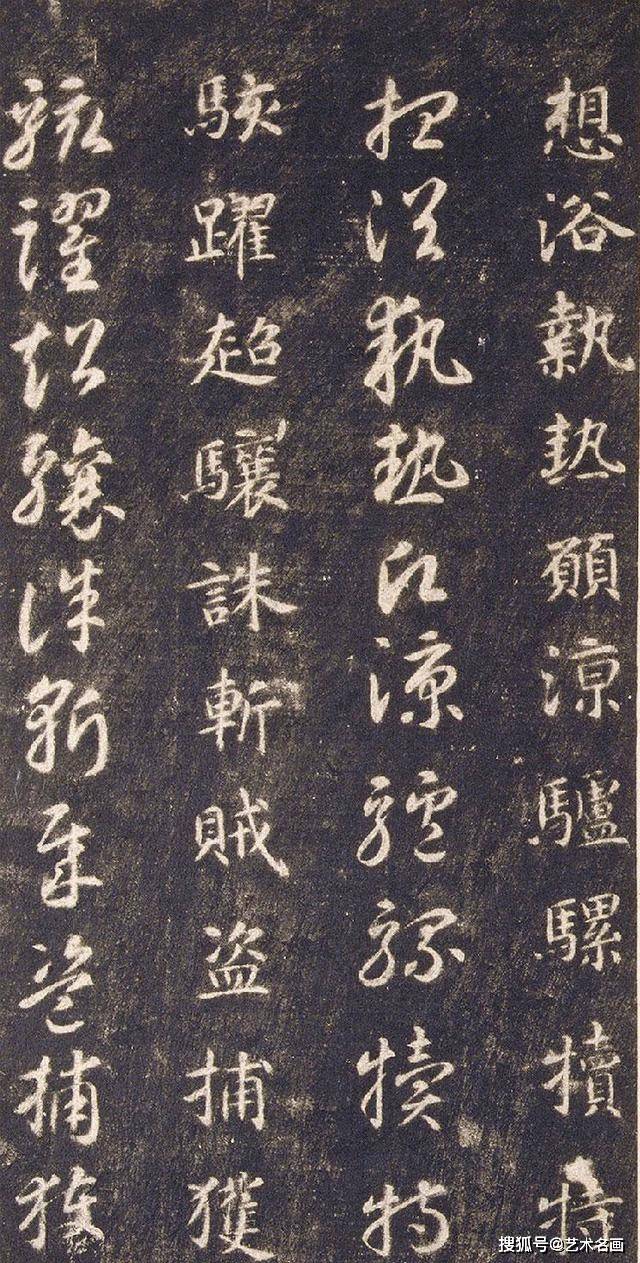 想浴執熱願涼驢騾犢特
想浴執熱願涼驢騾犢特
駭躍超驤誅斬賊盜捕獲
駭躍超驤誅斬賊盜捕獲
搜狐号@艺术名画